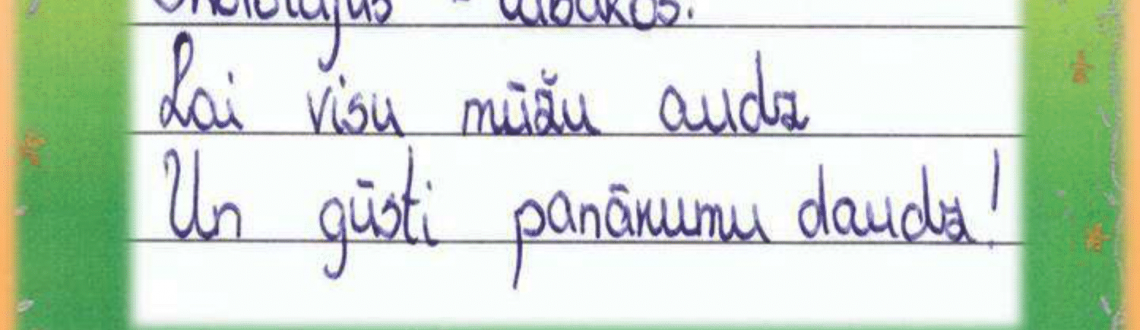 Lai visu mūžu audz
Un gūsti panākumu daudz!